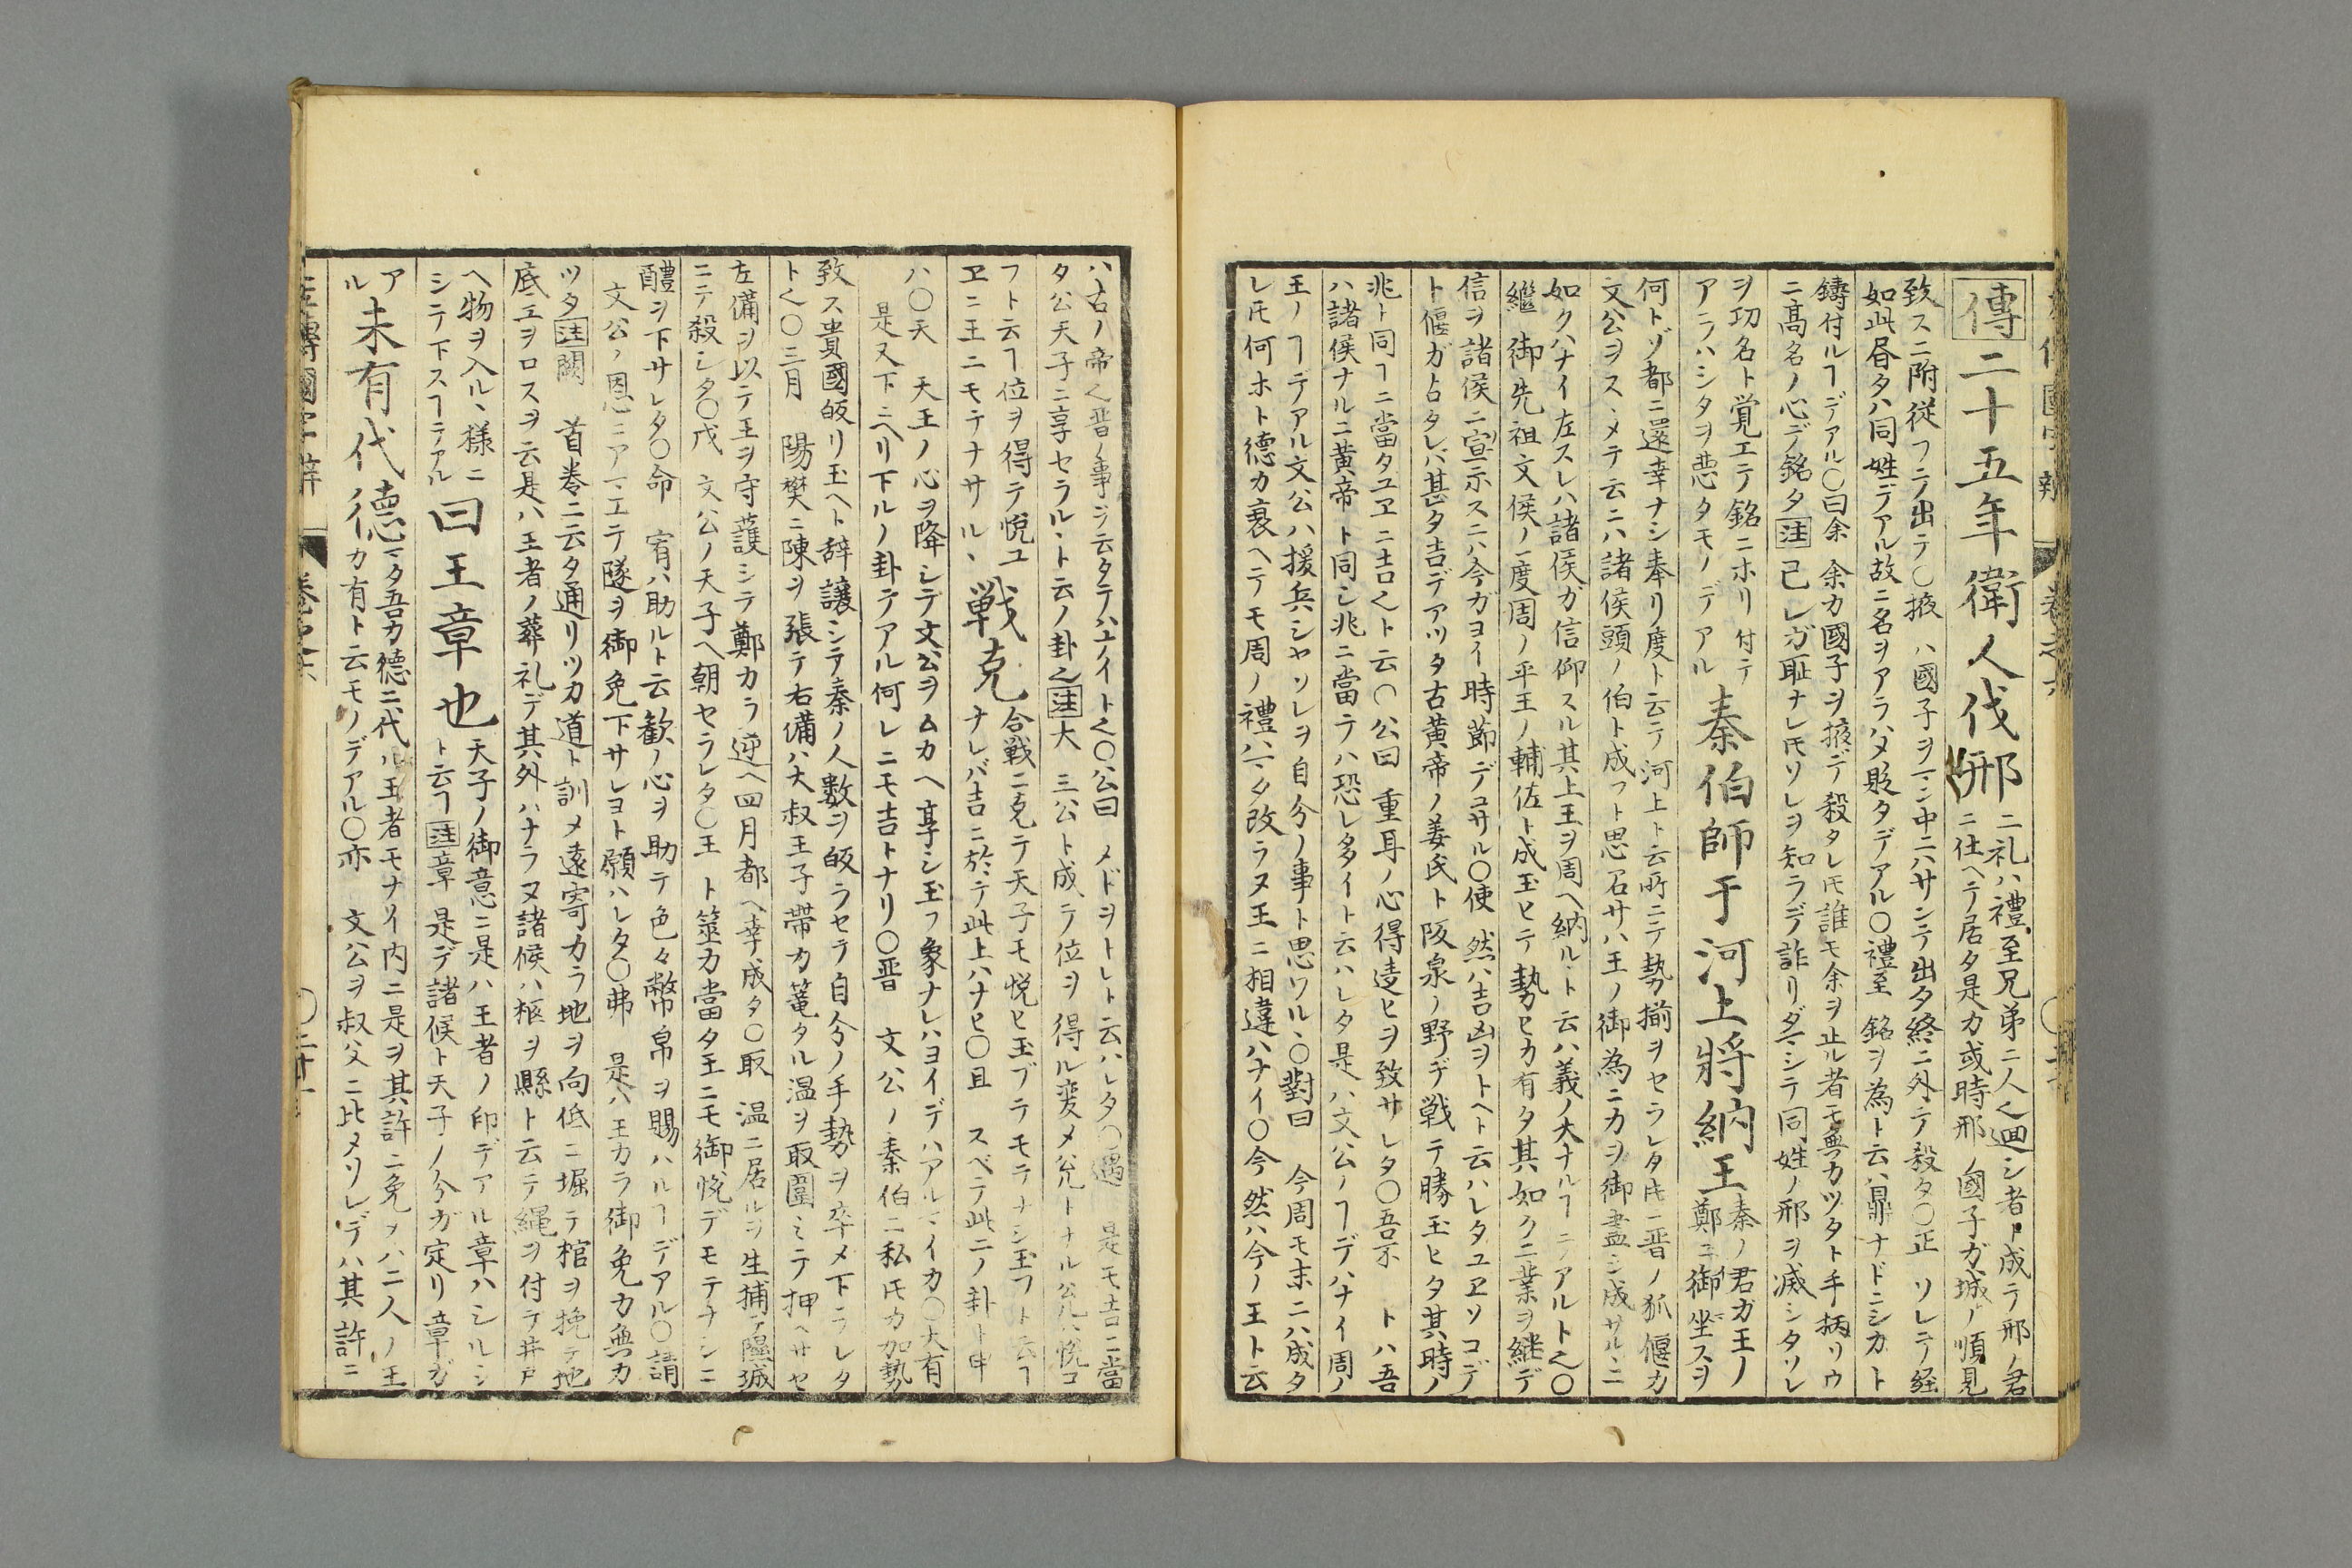 傳二十五年衛人伐邢
二礼ハ禮至兄弟二人〱廻シ者ト成テ邢ノ君
ニ仕ヘテ居タ是カ或時邢ノ國子ガ城ノ順見
致スニ附従フテ出テ〇掖 ハ國子ヲマン中ニハサンテ出タ終ニ外テ殺タ〇正 ソレテ経
如此昏タハ同姓テアル故ニ名ヲアラハメ貶タデアル〇禮至 銘ヲ為ト云ハ鼎ナドニシカト
鑄付ルヿデアル〇曰余 余カ國子ヲ掖デ殺タレ𪜈誰モ余ヲ止ル者モ無カツタト手柄リウ
ニ髙名ノ心デ銘タ注己レガ耻ナレ𪜈ソレヲ知ラデ詐リダマシテ同姓ノ邢ヲ滅シタソレ
ヲ功名ト覚エテ銘ニホリ付テ
アラハシタヲ悪タモノデアル
秦伯師于河上將納王
秦ノ君ガ王ノ
鄭ニ御坐スヲ
何トゾ都ニ還幸ナシ奉リ度ト云テ河上ト云所ニテ勢揃ヲセラレタ𪜈晋ノ狐偃カ
文公ヲスヽメテ云ニハ諸侯頭ノ伯ト成フト思召サハ王ノ御為ニカヲ御盡シ成サルヽニ
如クハナイ左スレハ諸侯ガ信仰スル其上王ヲ周ヘ納ルヽト云ハ義ノ大ナルヿニアルト〱〇
繼 御先祖文侯ノ一度周ノ平王ノ輔佐ト成玉ヒテ勢ヒカ有タ其如クニ業ヲ継デ
信ヲ諸侯ニ宣示スニハ今ガヨイ時節デゴサル〇使 然ハ吉凶ヲトヘト云ハレタユヱソコデ
ト偃ガ占タレバ甚タ吉デアツタ古黄帝ノ姜氏ト阪泉ノ野デ戦テ勝玉ヒタ其時ノ
兆ト同ヿニ當タユヱニ吉〱ト云〇公曰 重耳ノ心得違ヒヲ致サレタ〇吾不 トハ吾
ハ諸侯ナルニ黄帝ト同シ兆ニ當テハ恐レ多イト云ハレタ是ハ文公ノヿデハナイ周ノ
王ノヿデアル文公ハ援兵シヤソレヲ自分ノ事ト思ソルヽ〇對曰 今周モ末ニハ成タ
レ𪜈何ホト德カ衰ヘテモ周ノ禮ハマタ改ラヌ王ニ相違ハナイ〇今然ハ今ノ王ト云
ハ古ノ帝〱晋ノ事ヲ云タテハナイト〱〇公曰 メドヲトレト云ハレタ〇遇 是モ吉ニ當
タ公天子ニ享セラルヽト云ノ卦〱注大 三公ト成テ位ヲ得ル変メ兊トナル兊ハ悦コ
フト云ヿ位ヲ得テ悦ユ
ヱニ王ニモテナサルヽ
戦克
合戦ニ克テ天子モ悦ヒ玉ブテモテナシ玉フト云ヿ
ナレバ吉ニ於テ此上ハナヒ〇且 スベテ此二ノ卦ト申
ハ〇天 天王ノ心ヲ降シテ文公ヲムカヘ享シ玉フ象ナレハヨイデハアルマイカ〇大有
是又下ニヘリ下ルノ卦テアル何レニモ吉トナリ〇晋 文公ノ秦伯ニ私𪜈カ加勢
致ス貴國皈リ玉ヘト辞讓シテ秦ノ人数ヲ皈ラセテ自分ノ手勢ヲ卒メ下ラレタ
ト〱〇三月 陽樊ニ陳ヲ張テ右備ハ大叔王子帶カ篭タル温ヲ取圍ミテ押ヘサセ
左備ヲ以テ王ヲ守護シテ鄭カラ逆ヘ四月都ヘ幸成タ〇取 温ニ居ルヲ生捕テ隰城
ニテ殺シタ〇戊 文公ノ天子ヘ朝セラレタ〇王 ト筮カ當タ王ニモ御悦デモテナシニ
醴ヲ下サレタ〇命 宥ハ助ルト云歓ノ心ヲ助テ色々幣帛ヲ賜ハルヿデアル〇請
文公ノ恩ニアマエテ隧ヲ御免下サレヨト願ハレタ〇弗 是ハ王カラ御免カ無カ
ツタ注闕 首巻ニ云タ通リツカ道ト訓メ遠寄カラ地ヲ向低ニ堀テ棺ヲ挽テ地
底エヲロスヲ云是ハ王者ノ葬礼デ其外ハナラヌ諸候ハ柩ヲ縣ト云テ縄ヲ付テ井戸
ヘ物ヲ入ルヽ様ニ
シテ下スヿテアル
曰王章也
天子ノ御意ニ是ハ王者ノ印デアル章ハシルシ
ト云ヿ注章 是デ諸候ト天子ノ分ガ定リ章ガ
アル
未有代德
マタ吾カ徳ニ代ル王者モナイ内ニ是ヲ其許ニ免メハ二人ノ王
カ有ト云モノデアル〇亦 文公ヲ叔父ニ比メソレデハ其許ニ